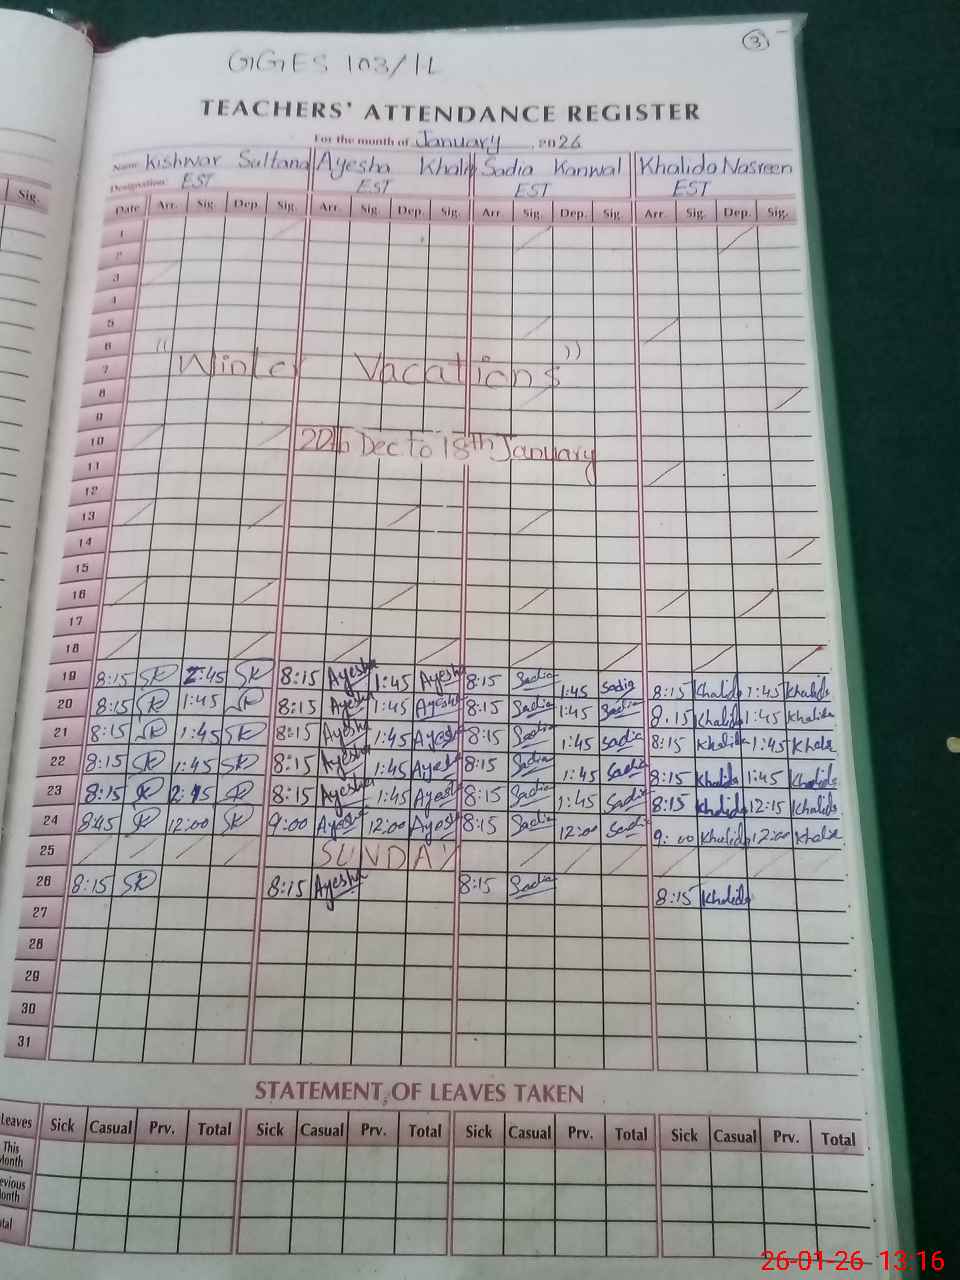 3
GGES 103/1L
TEACHERS' ATTENDANCE REGISTER
For the month of January 2026
Name Kishwar Sultana Ayesha Khalid Sadia Kanwal Khalida Nasreen
Designation EST EST EST EST
Sig. Date Arr. Sig. Dep. Sig. Arr. Sig. Dep. Sig. Arr. Sig. Dep. Sig. Arr. Sig. Dep. Sig.
1
2
3
4
5
6
7 "Winter Vacations"
8
9
10 20th Dec to 18th January
11
12
13
14
15
16
17
18
19 8:15 SK 1:45 SK 8:15 Ayesha 1:45 Ayesha 8:15 Sadia 1:45 Sadia 8:15 Khalida 1:45 Khalida
20 8:15 SK 1:45 SK 8:15 Ayesha 1:45 Ayesha 8:15 Sadia 1:45 Sadia 8.15 Khalida 1:45 Khalida
21 8:15 SK 1:45 SK 8:15 Ayesha 1:45 Ayesha 8:15 Sadia 1:45 Sadia 8:15 Khalida 1:45 Khalida
22 8:15 SK 1:45 SK 8:15 Ayesha 1:45 Ayesha 8:15 Sadia 1:45 Sadia 8:15 Khalida 1:45 Khalida
23 8:15 SK SK 8:15 Ayesha 1:45 Ayesha 8:15 Sadia 1:45 Sadia 8:15 Khalida 12:15 Khalida
24 8:45 SK 12:00 SK 9:00 Ayesha 12:00 Ayesha 8:15 Sadia 12:00 Sadia 9:00 Khalida 12:00 Khalida
25 SUNDAY
26 8:15 SK 8:15 Ayesha 8:15 Sadia 8:15 Khalida
27
28
29
30
31
STATEMENT OF LEAVES TAKEN
Leaves Sick Casual Prv. Total Sick Casual Prv. Total Sick Casual Prv. Total Sick Casual Prv. Total
This Month
evious onth
tal
26-01-26 13:16